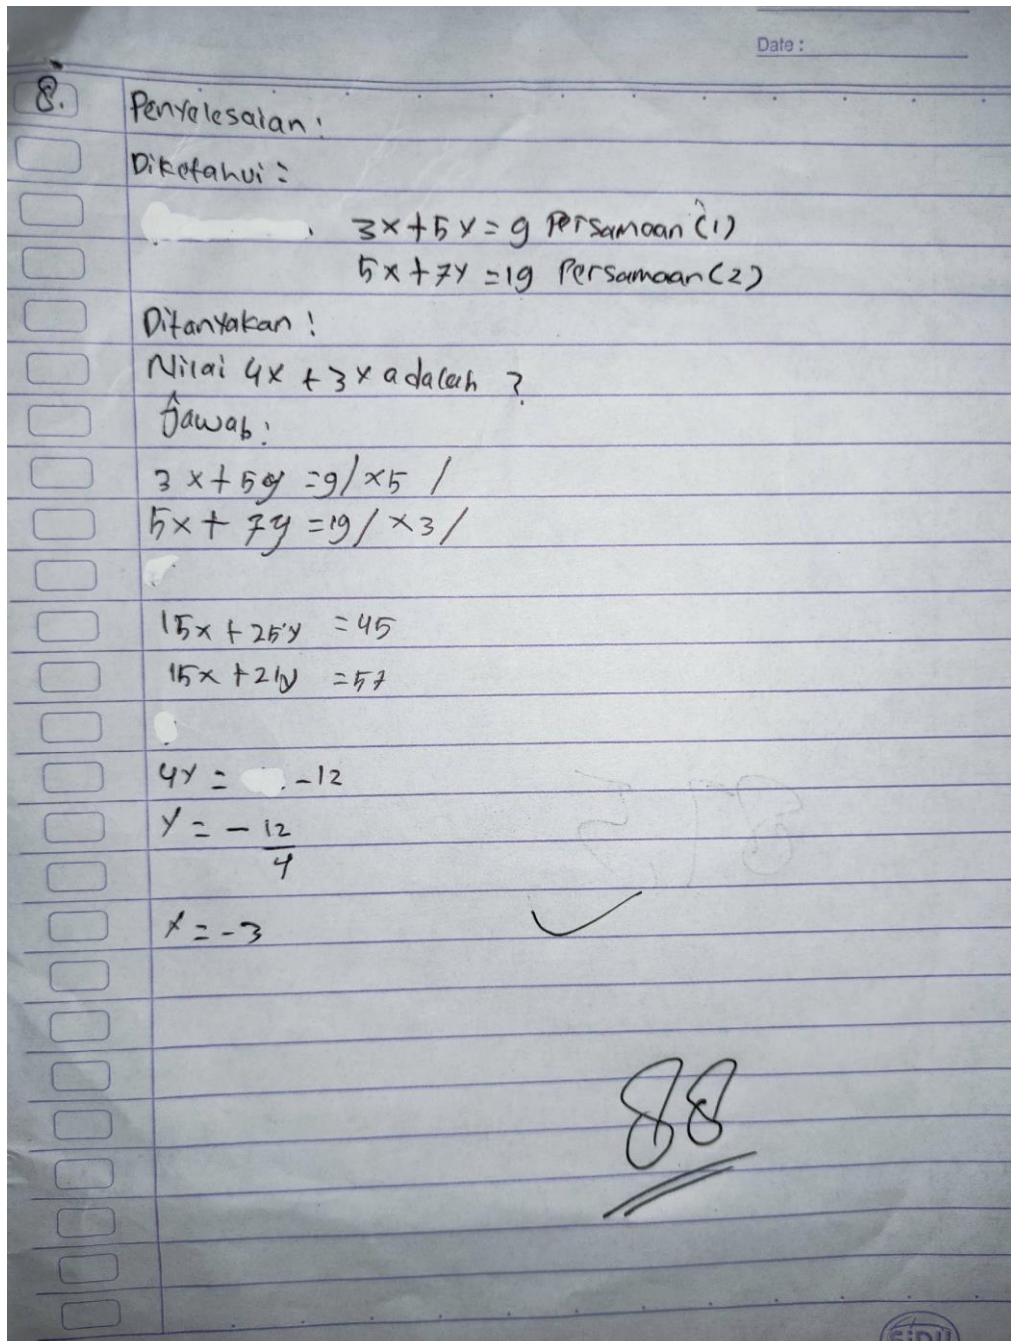 Date :
8. Penyelesaian :
Diketahui :
3x + 5y = 9 Persamaan (1)
5x + 7y = 19 Persamaan (2)
Ditanyakan !
Nilai 4x + 3x adalah ?
Jawab :
3x + 5y = 9 / x5 /
5x + 7y = 19 / x3 /
15x + 25y = 45
15x + 21y = 57
4y = -12
y = - 12/4
x = -3
88
SiDU